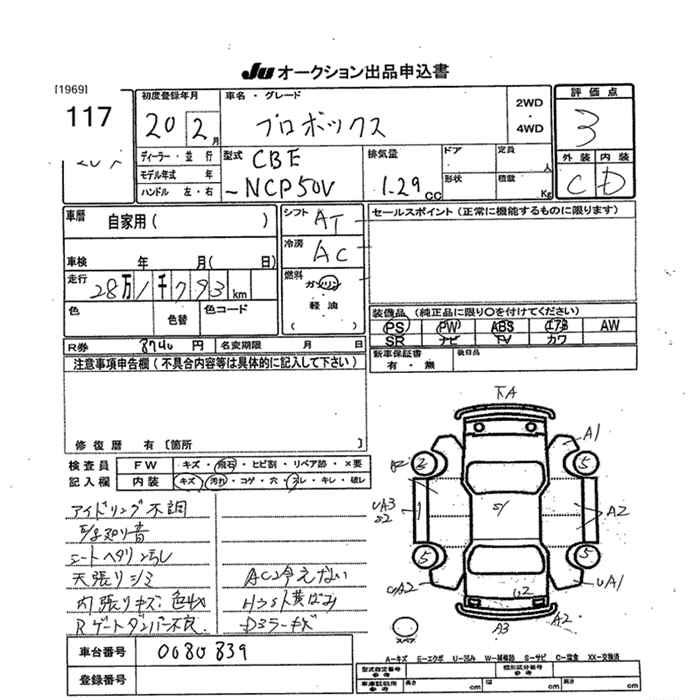 JU オークション出品申込書
[1969]
117
初度登録年月
20 2月
車名・グレード
プロボックス
2WD
・
4WD
評価点
3
外装 内装
C D
ディーラー・並行
モデル年式 年
ハンドル 左・右
型式
CBE
-NCP50V
排気量
1.29 cc
ドア
定員 人
形状
積載 Kg
車歴 自家用( )
シフト AT
冷房 AC
セールスポイント(正常に機能するものに限ります)
車検 年 月( 日)
走行 28万1千793km
燃料
ガソリン
・
軽油
( )
色
色替
色コード
装備品(純正品に限り○を付けてください)
PS PW ABS エアB AW
SR ナビ TV カワ
R券 8740円
名変期限 月 日
新車保証書
有・無
後日品
注意事項申告欄(不具合内容等は具体的に記入して下さい)
修復歴 有〔箇所 〕
検査員
記入欄
FW キズ・飛石・ヒビ割・リペア跡・×要
内装 キズ・汚れ・コゲ・穴・スレ・キレ・破レ
アイドリング不調
シートヘタリ
天張りシミ
内張りキズ
Rゲートダンパー不良
AC冷えない
下A
A1
3
5
UA3
S2
A2
5
5
UA2
UA1
U2
A3
A2
スペア
車台番号 0080839
登録番号
A−キズ E−エクボ U−凹み W−補修跡 S−サビ C−腐食 XX−交換済
長さ cm 幅 cm 高さ cm